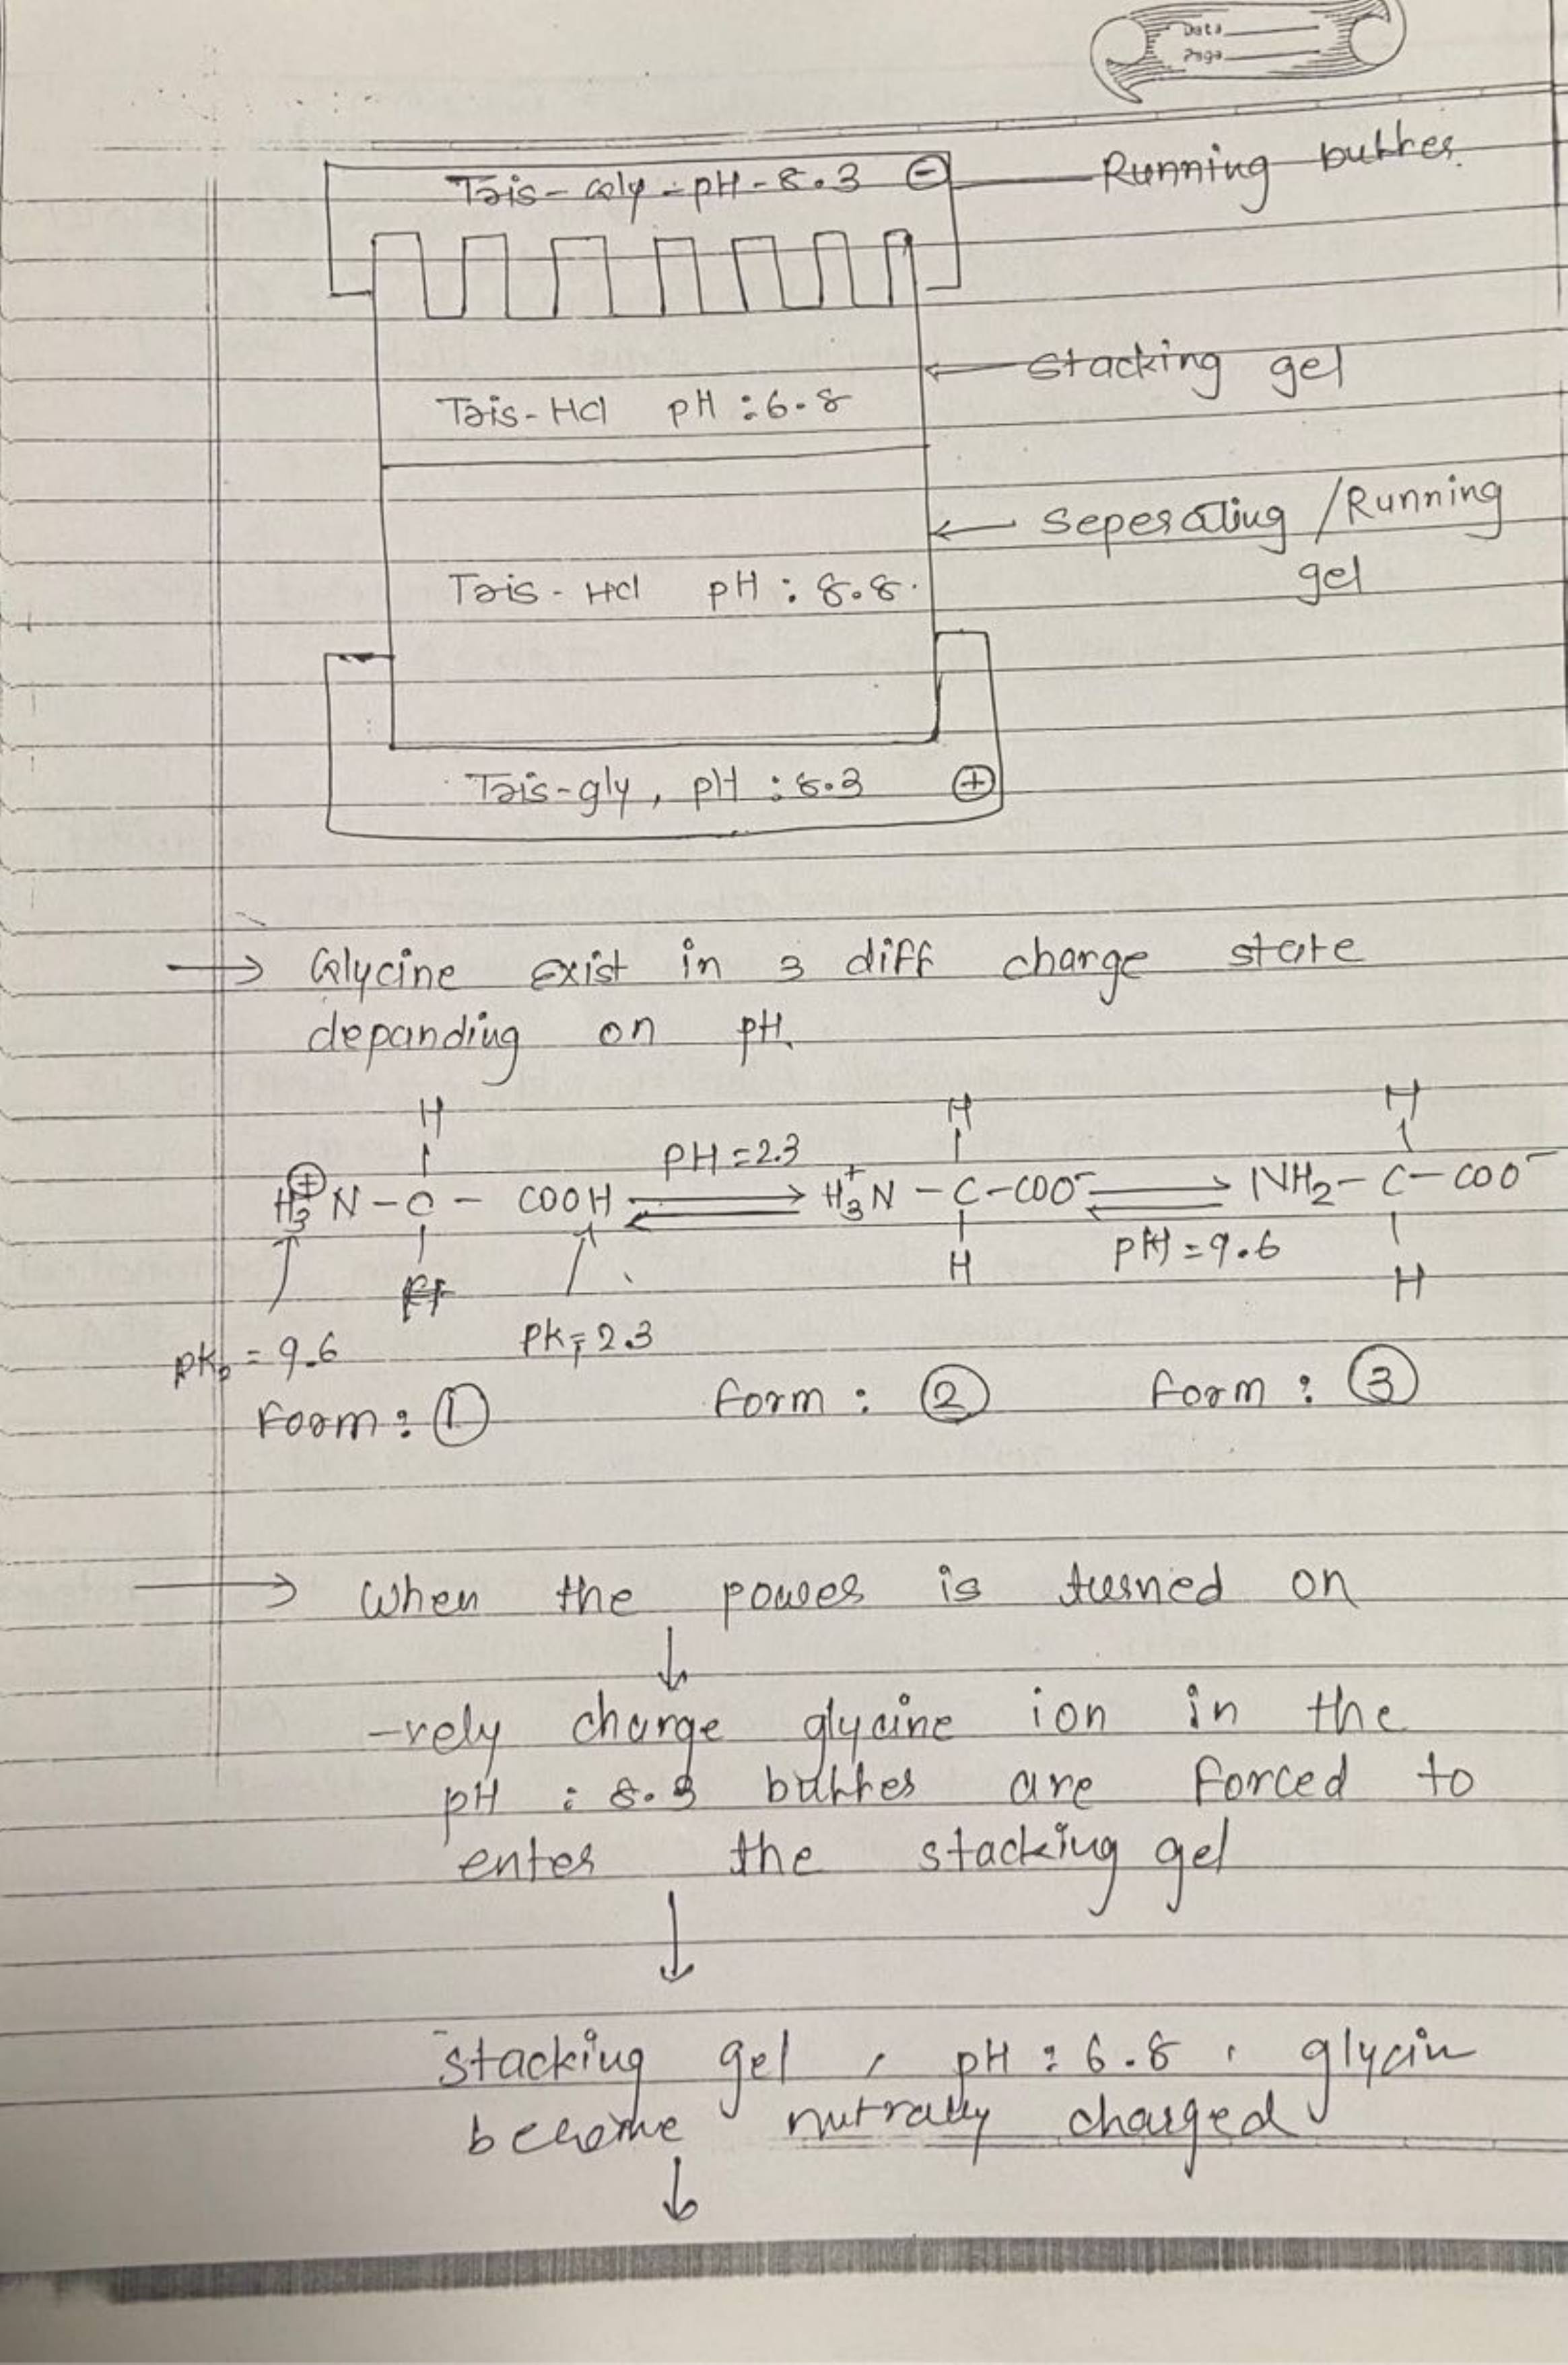 Data
Page
Tris-Gly-pH-8.3 ⊖ Running buffer
Stacking gel
Tris-HCl pH : 6.8
Seperating / Running
gel
Tris-HCl pH : 8.8.
Tris-gly, pH : 8.3 ⊕
→ Glycine exist in 3 diff charge state
depanding on pH.
H H H
PH = 2.3
H3⊕N-C-COOH ⇌ H3+N-C-COO- ⇌ NH2-C-COO-
pH = 9.6
H H
pK2 = 9.6 PK1 = 2.3
Form : ① form : ② form : ③
→ When the power is turned on
↓
-vely charge glycine ion in the
pH : 8.3 buffer are forced to
enter the stacking gel
↓
stacking gel , pH : 6.8 , glycin
become nutrally charged
↓